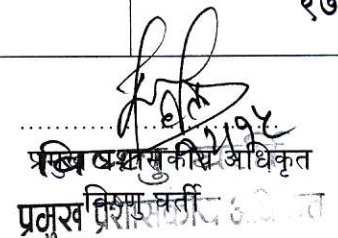 ९७
प्रमुख प्रशासकीय अधिकृत
विष्णु घर्ती
प्रमुख प्रशासकीय अधिकृत